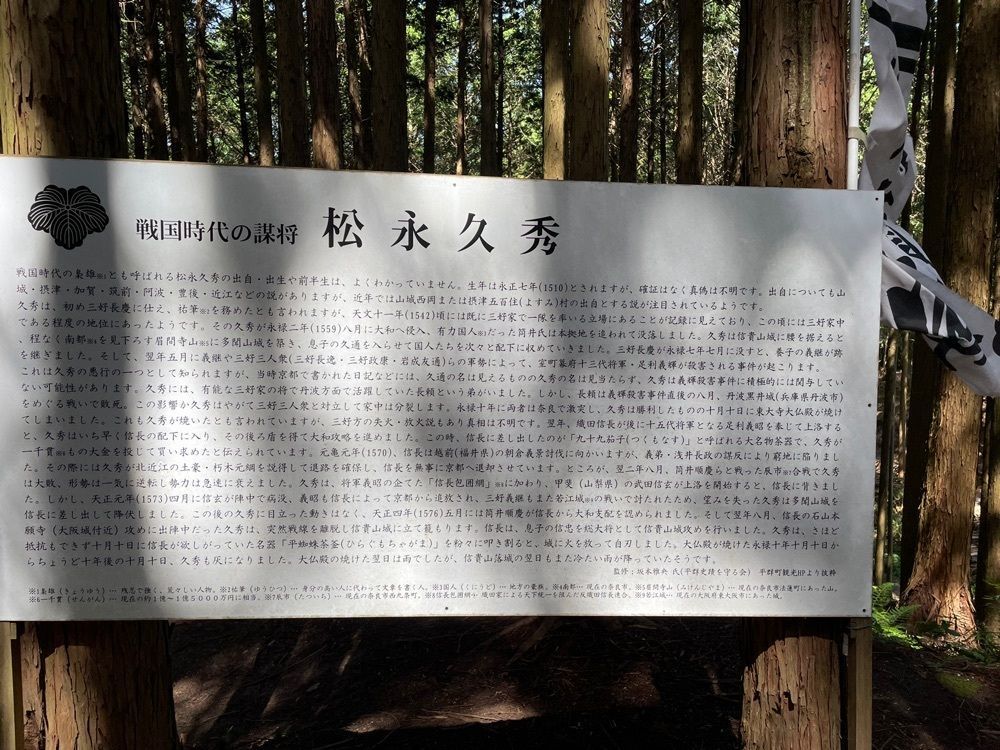 戦国時代の謀将 松永久秀
戦国時代の梟雄※1とも呼ばれる松永久秀の出自・出生や前半生は、よくわかっていません。生年は永正七年(1510)とされますが、確証はなく真偽は不明です。出自についても山
城・摂津・加賀・筑前・阿波・豊後・近江などの説がありますが、近年では山城西岡または摂津五百住(よすみ)村の出自とする説が注目されているようです。
久秀は、初め三好長慶に仕え、祐筆※2を務めたとも言われますが、天文十一年(1542)頃には既に三好家で一隊を率いる立場にあることが記録に見えており、この頃には三好家中
である程度の地位にあったようです。その久秀が永禄二年(1559)八月に大和へ侵入、有力国人※3だった筒井氏は本拠地を追われて没落しました。久秀は信貴山城に腰を据えると
、程なく南都※4を見下ろす眉間寺山※5に多聞山城を築き、息子の久通を入らせて国人たちを次々と配下に収めていきました。三好長慶が永禄七年七月に没すと、養子の義継が跡
を継ぎました。そして、翌年五月に義継や三好三人衆(三好長逸・三好政康・岩成友通)らの軍勢によって、室町幕府十三代将軍・足利義輝が殺害される事件が起こります。
これは久秀の悪行の一つとして知られますが、当時京都で書かれた日記などには、久通の名は見えるものの久秀の名は見当たらず、久秀は義輝殺害事件に積極的には関与してい
ない可能性があります。久秀には、有能な三好家の将で丹波方面で活躍していた長頼という弟がいました。しかし、長頼は義輝殺害事件直後の八月、丹波黒井城(兵庫県丹波市)
をめぐる戦いで敗死。この影響か久秀はやがて三好三人衆と対立して家中は分裂します。永禄十年に両者は奈良で激突し、久秀は勝利したものの十月十日に東大寺大仏殿が焼け
てしまいました。これも久秀が焼いたとも言われていますが、三好方の失火・放火説もあり真相は不明です。翌年、織田信長が後に十五代将軍となる足利義昭を奉じて上洛する
と、久秀はいち早く信長の配下に入り、その後ろ盾を得て大和攻略を進めました。この時、信長に差し出したのが「九十九茄子(つくもなす)」と呼ばれる大名物茶器で、久秀が
一千貫※6もの大金を投じて買い求めたと伝えられています。元亀元年(1570)、信長は越前(福井県)の朝倉義景討伐に向かいますが、義弟・浅井長政の謀反により窮地に陥りまし
た。その際には久秀が北近江の土豪・朽木元綱を説得して退路を確保し、信長を無事に京都へ退却させています。ところが、翌二年八月、筒井順慶らと戦った辰市※7合戦で久秀
は大敗、形勢は一気に逆転し勢力は急速に衰えました。久秀は、将軍義昭の企てた「信長包囲網」※8に加わり、甲斐(山梨県)の武田信玄が上洛を開始すると、信長に背きまし
た。しかし、天正元年(1573)四月に信玄が陣中で病没、義昭も信長によって京都から追放され、三好義継もまた若江城※9の戦いで討たれたため、望みを失った久秀は多聞山城を
信長に差し出して降伏しました。この後の久秀に目立った動きはなく、天正四年(1576)五月には筒井順慶が信長から大和支配を認められました。そして翌年八月、信長の石山本
願寺(大阪城付近)攻めに出陣中だった久秀は、突然戦線を離脱し信貴山城に立て籠もります。信長は、息子の信忠を総大将として信貴山城攻めを行いました。久秀は、さほど
抵抗もできず十月十日に信長が欲しがっていた名器「平蜘蛛茶釜(ひらぐもちゃがま)」を粉々に叩き割ると、城に火を放って自刃しました。大仏殿が焼けた永禄十年十月十日か
らちょうど十年後の十月十日、久秀も灰になりました。大仏殿の焼けた翌日は雨でしたが、信貴山落城の翌日もまた冷たい雨が降っていたそうです。
監修:坂本雅央 氏(平群史蹟を守る会) 平群町観光HPより抜粋
※1梟雄(きょうゆう)… 残忍で強く、荒々しい人物。※2祐筆(ゆうひつ)… 身分の高い人に代わって文章を書く人。※3国人(くにうど)… 地方の豪族。※4南都… 現在の奈良市。※5眉間寺山(みけんじやま)… 現在の奈良市法蓮町にあった山。
※6一千貫(せんがん)… 現在の約1億~1億5000万円に相当。※7辰市(たついち)… 現在の奈良市西九条町。※8信長包囲網… 織田家による天下統一を阻んだ反織田信長連合。※9若江城… 現在の大阪府東大阪市にあった城。